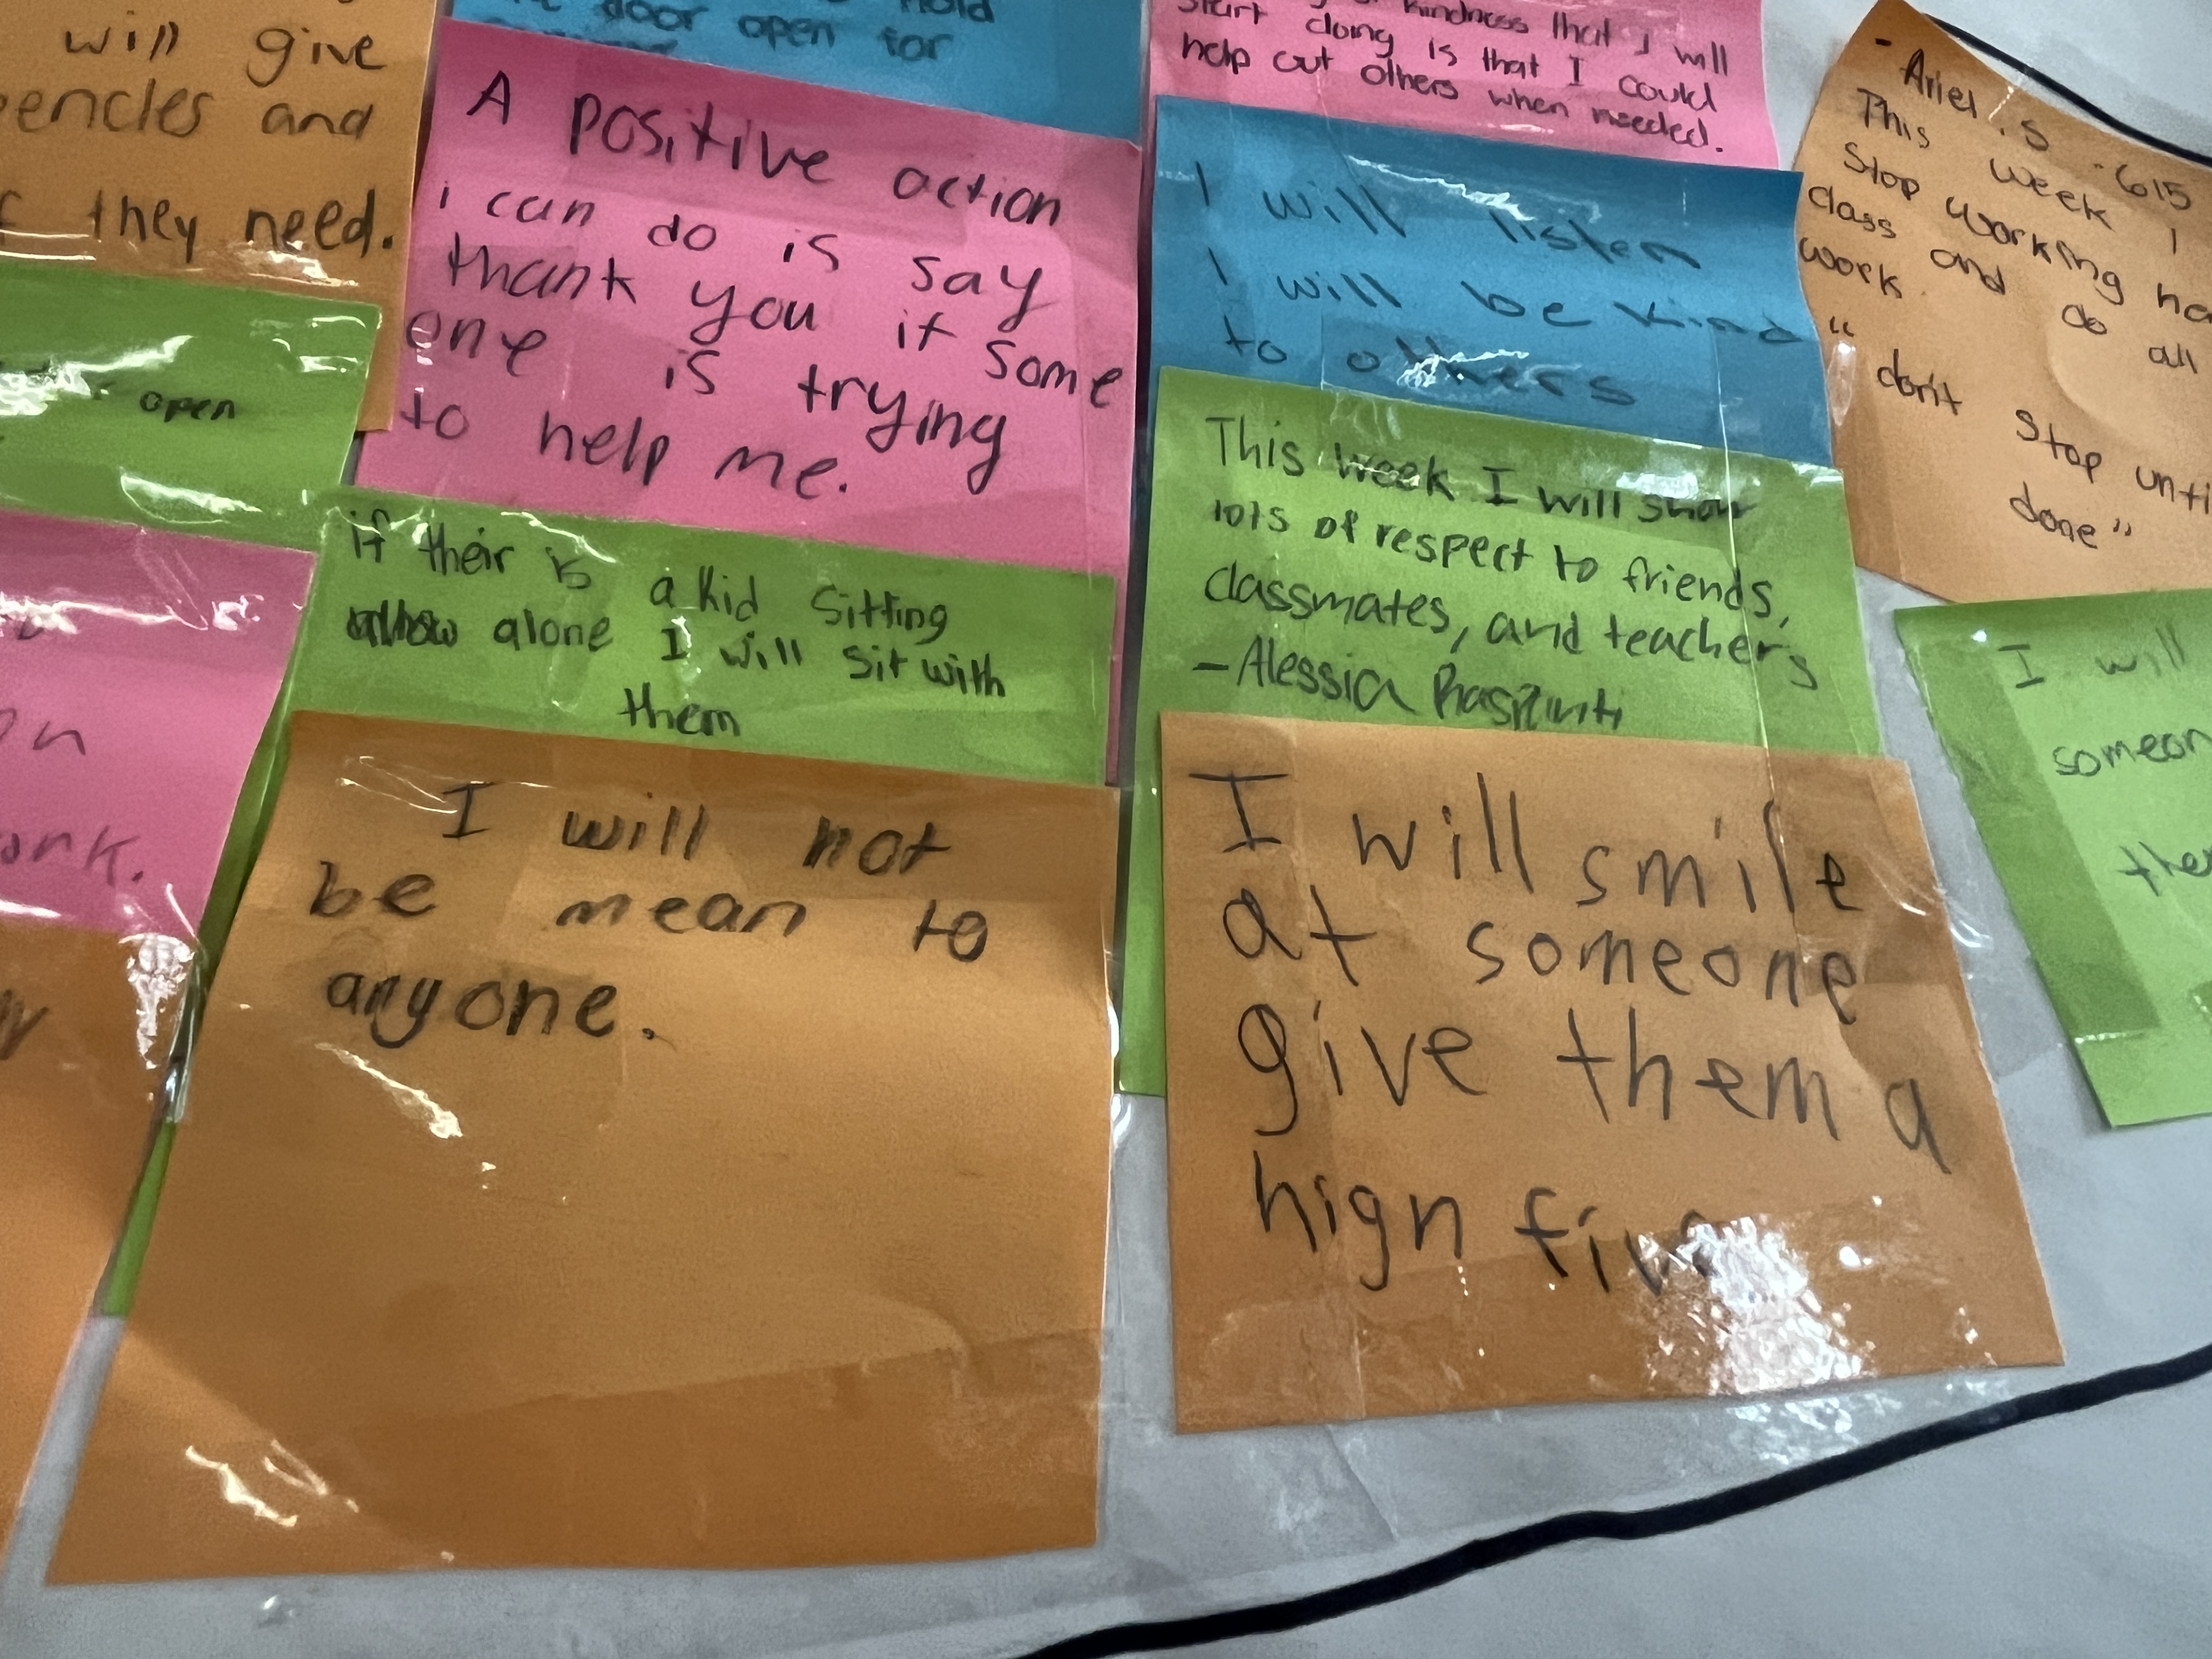 will give
pencles and
they need.
open
on
ork.
hold
door open for
A positive action
i can do is say
thank you if some
one is trying
to help me.
if their is a kid sitting
alone I will sit with
them
I will not
be mean to
anyone.
kindness that I will
start doing is that I could
help out others when needed.
I will listen
I will be kind
to others
This week I will show
lots of respect to friends,
classmates, and teachers
- Alessia
I will smile
at someone
give them a
hign five
- Ariel . S - 615
This week I
Stop working ha
class and do all
work.
" don't stop unti
done"
I will
someon
the